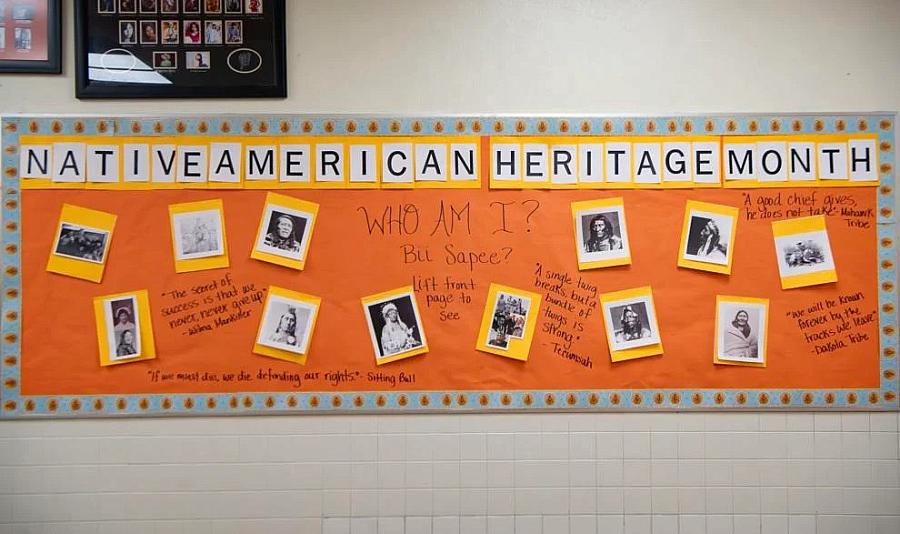 NATIVE AMERICAN HERITAGE MONTH
WHO AM I?
Bii Sapee?
Lift front
page to
see
"The secret of
success is that we
never, never give up"
- Wilma Mankiller
"If we must die, we die defending our rights." - Sitting Bull
"A single twig
breaks, but a
bundle of
twigs is
strong."
- Tecumsah
"A good chief gives,
he does not take" - Mohawk
Tribe
"We will be known
forever by the
tracks we leave"
- Dakota Tribe